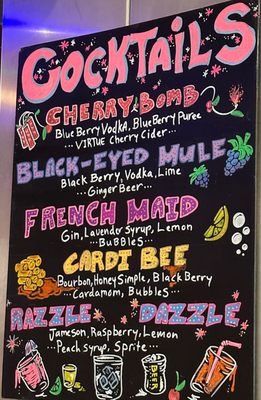 COCKTAILS
CHERRY BOMB
BlueBerry Vodka, BlueBerry Puree
... VIRTUE Cherry Cider...
BLACK-EYED MULE
Black Berry, Vodka, Lime
... Ginger Beer...
FRENCH MAID
Gin, Lavender syrup, Lemon
... Bubbles...
CARDI BEE
Bourbon, Honey Simple, Black Berry
... Cardamom, Bubbles...
RAZZLE DAZZLE
Jameson, Raspberry, Lemon
... Peach syrup, Sprite...
BEER